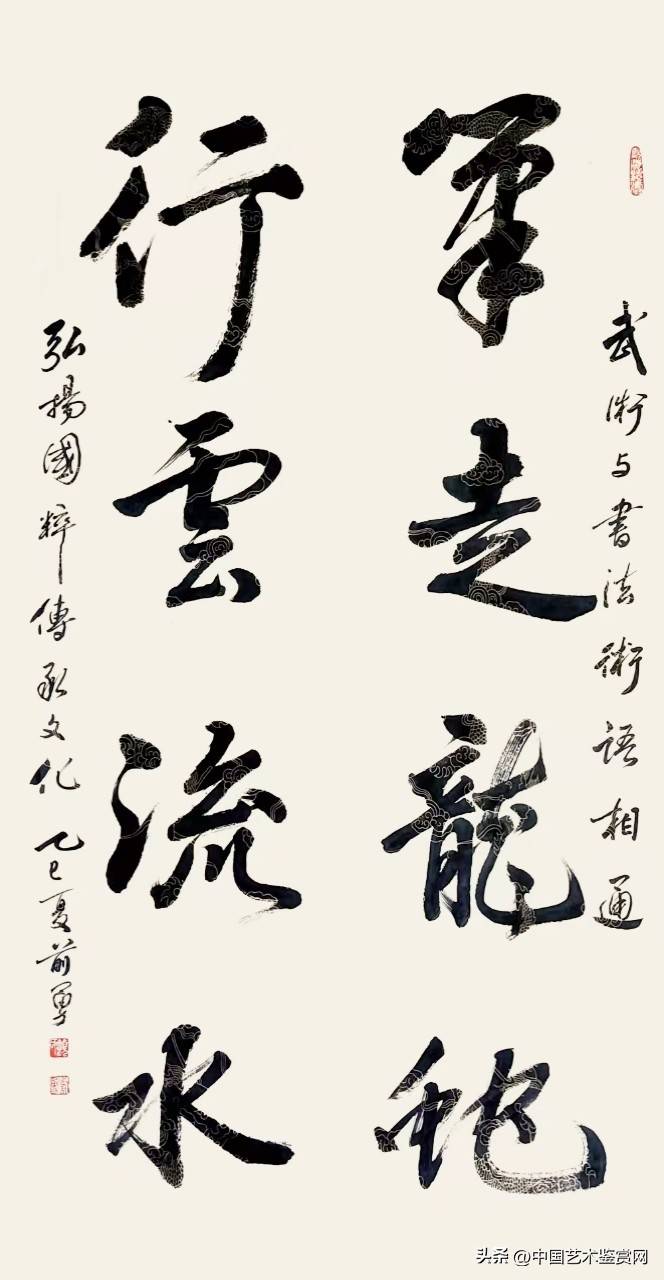 武術与書法術語相通
筆走龍蛇
行雲流水
弘揚國粹傳承文化 乙巳夏前勇
头条 @中国艺术鉴赏网